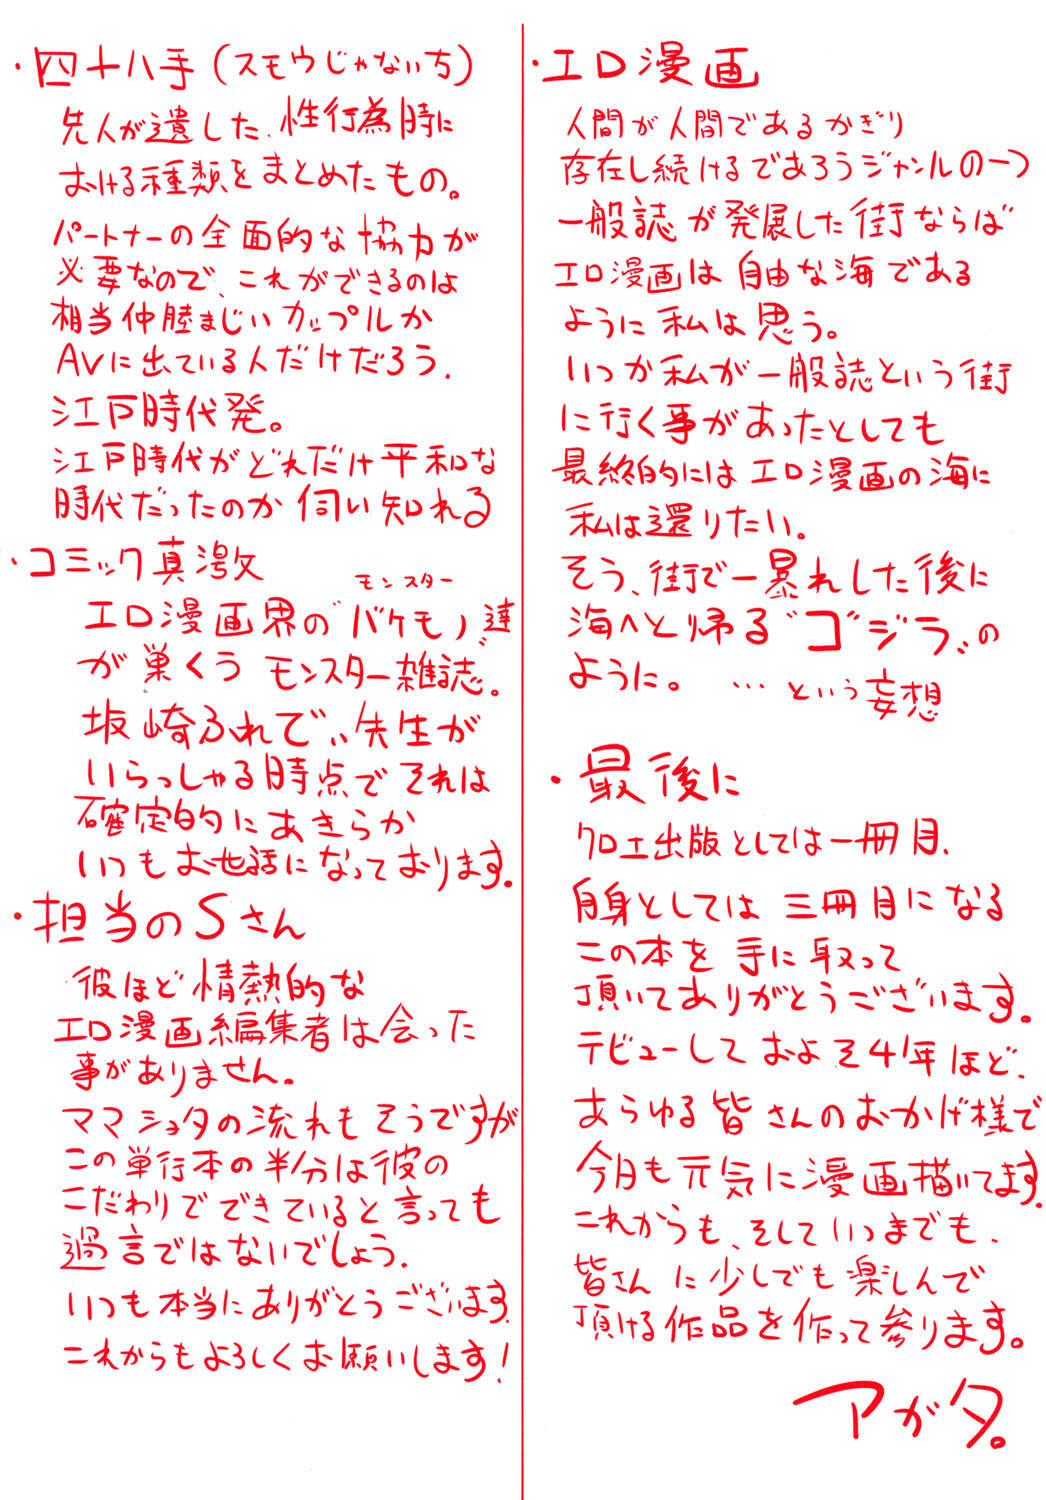 ・四十八手(スモウじゃない方)
先人が遺した、性行為時に
おける種類をまとめたもの。
パートナーの全面的な協力が
必要なので、これができるのは
相当仲睦まじいカップルか
AVに出ている人だけだろう.
江戸時代発。
江戸時代がどれだけ平和な
時代だったのか伺い知れる
・コミック真激
モンスター
エロ漫画界の"バケモノ達"
が巣くうモンスター雑誌。
坂崎ふれでぃ先生が
いらっしゃる時点でそれは
確定的にあきらか
いつもお世話になっております。
・担当のSさん
彼ほど情熱的な
エロ漫画編集者は会った
事がありません。
ママショタの流れもそうですが
この単行本の半分は彼の
こだわりでできていると言っても
過言ではないでしょう.
いつも本当にありがとうございます.
これからもよろしくお願いします!
・エロ漫画
人間が人間であるかぎり
存在し続けるであろうジャンルの一つ
一般誌が発展した街ならば
エロ漫画は自由な海である
ように私は思う。
いつか私が一般誌という街
に行く事があったとしても
最終的にはエロ漫画の海に
私は還りたい。
そう、街で一暴れした後に
海へと帰る"ゴジラ"の
ように。 …という妄想
・最後に
クロエ出版としては一冊目、
自身としては三冊目になる
この本を手に取って
頂いてありがとうございます。
デビューしておよそ4年ほど、
あらゆる皆さんのおかげ様で
今月も元気に漫画描いてます.
これからも、そしていつまでも、
皆さんに少しでも楽しんで
頂ける作品を作って参ります。
アガタ。